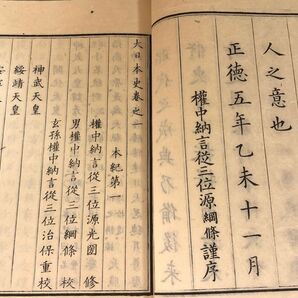 人之意也
正德五年乙未十一月
權中納言從三位源綱條謹序
大日本史卷之一
本紀第一
權中納言從三位源光圀 修
男權中納言從三位綱條 校
玄孫權中納言從三位治保重校
神武天皇
綏靖天皇